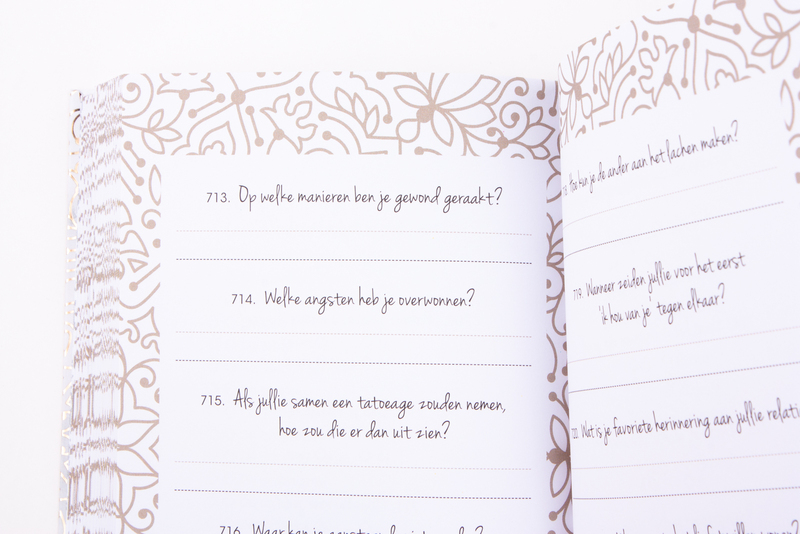 713. Op welke manieren ben je gewond geraakt?
714. Welke angsten heb je overwonnen?
715. Als jullie samen een tatoeage zouden nemen,
hoe zou die er dan uit zien?
716. Waar kan je
Hoe kun je de ander aan het lachen maken?
719. Wanneer zeiden jullie voor het eerst
'ik hou van je' tegen elkaar?
Wat is je favoriete herinnering aan jullie relati